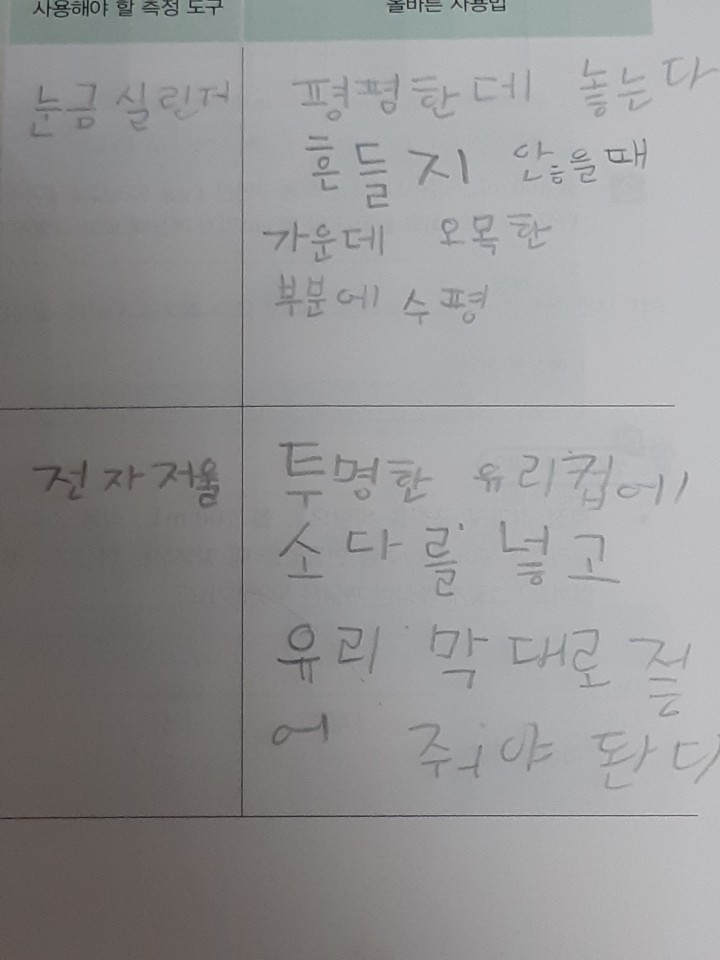 사용해야 할 측정 도구
올바른 사용법
눈금 실린저
평평한데 놓는다
흔들지 않을때
가운데 오목한
부분에 수평
전자저울
투명한 유리컵에
소다를 넣고
유리 막대로 젚
어 줘야 돤다